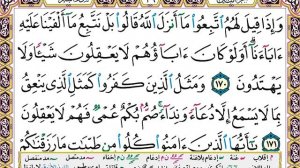 وَإِذَا قِيلَ لَهُمُ ٱتَّبِعُوا۟ مَآ أَنزَلَ ٱللَّهُ قَالُوا۟ بَلْ نَتَّبِعُ مَآ أَلْفَيْنَا عَلَيْهِ
ءَابَآءَنَآ ۗ أَوَلَوْ كَانَ ءَابَآؤُهُمْ لَا يَعْقِلُونَ شَيْـًٔا وَلَا
يَهْتَدُونَ ١٧٠ وَمَثَلُ ٱلَّذِينَ كَفَرُوا۟ كَمَثَلِ ٱلَّذِى يَنْعِقُ
بِمَا لَا يَسْمَعُ إِلَّا دُعَآءً وَنِدَآءً ۚ صُمٌّۢ بُكْمٌ عُمْىٌ فَهُمْ لَا يَعْقِلُونَ
١٧١ يَـٰٓأَيُّهَا ٱلَّذِينَ ءَامَنُوا۟ كُلُوا۟ مِن طَيِّبَـٰتِ مَا رَزَقْنَـٰكُمْ